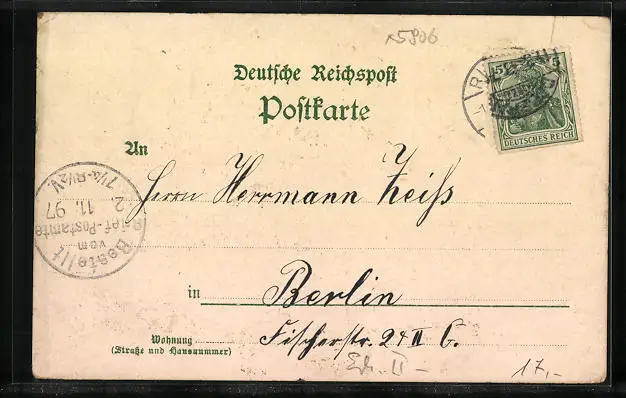 x5806
Deutsche Reichspost
Postkarte
5 5
DEUTSCHES REICH
An
Herrn Herrmann Zeiss
in Berlin
Fischerstr. 24 II
Wohnung
(Straße und Hausnummer)
17,-
Bestellt
vom
Brief-Postamte
2. 11. 97
7¼-8½V.